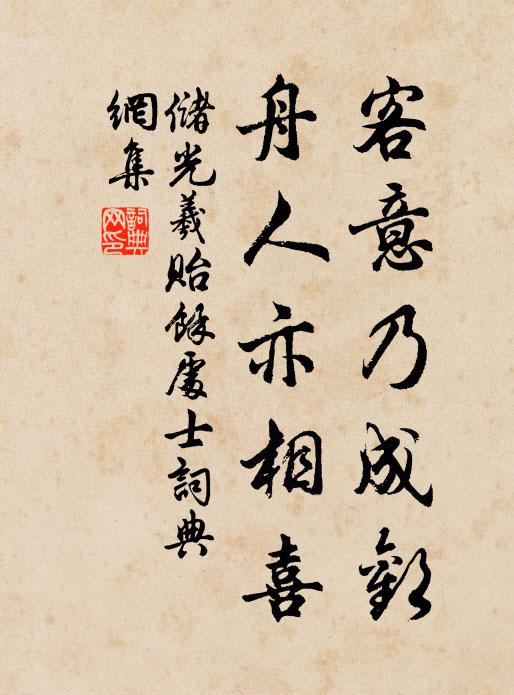 客意乃成歡
舟人亦相喜
儲光羲貽餘處士詞典
網集
詞典網印